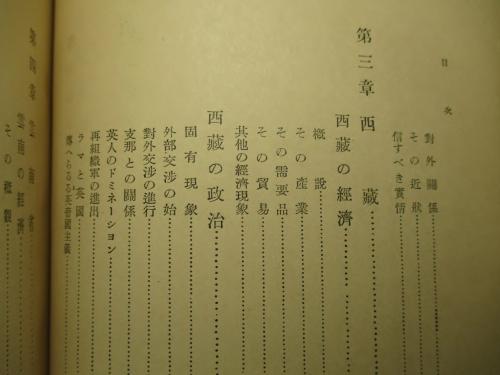 目次
對外關係
その近狀
信すべき實情
第三章 西藏
西藏の經濟
概說
その產業
その需要品
その貿易
其他の經濟現象
西藏の政治
固有現象
外部交涉の始
對外交涉の進行
支那との關係
英人のドミネーション
再組織軍の進出
ラマと英國
第四章 雲南省
雲南の經濟
その概觀